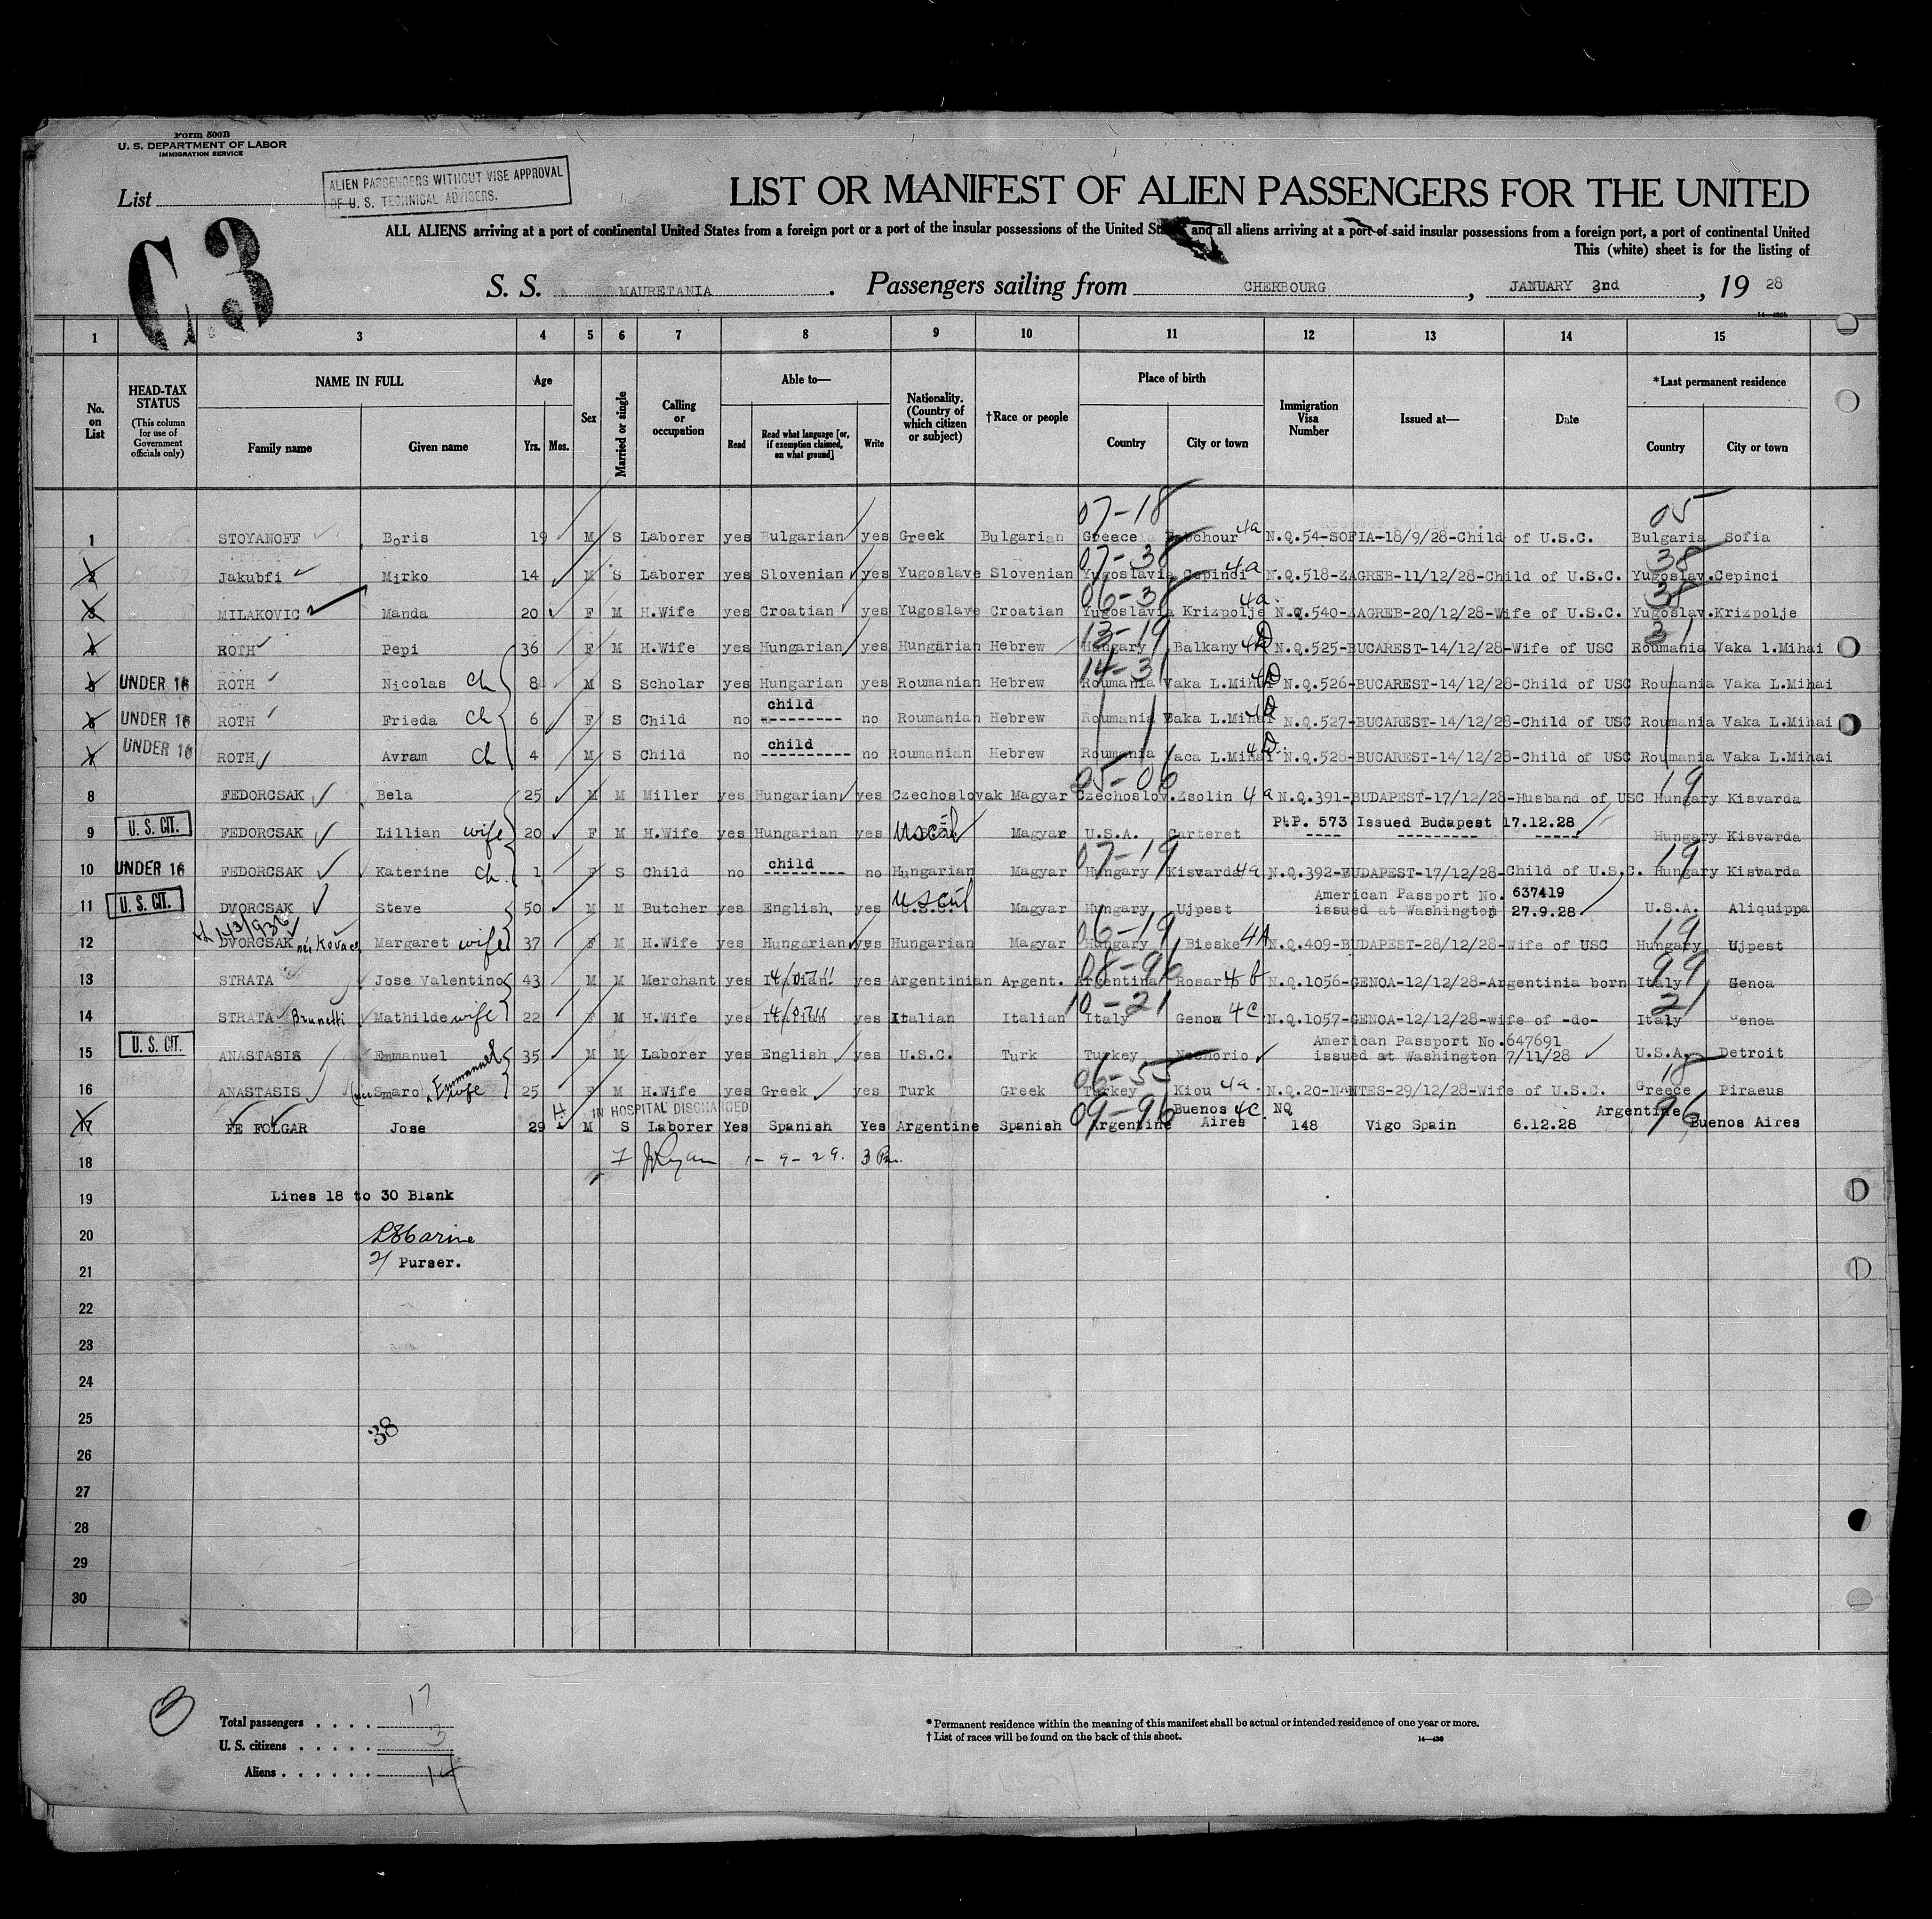 Form 500B
U. S. DEPARTMENT OF LABOR
IMMIGRATION SERVICE
List
ALIEN PASSENGERS WITHOUT VISE APPROVAL
OF U. S. TECHNICAL ADVISERS.
C 3
LIST OR MANIFEST OF ALIEN PASSENGERS FOR THE UNITED
ALL ALIENS arriving at a port of continental United States from a foreign port or a port of the insular possessions of the United and all aliens arriving at a port of said insular possessions from a foreign port, a port of continental United
This (white) sheet is for the listing of
S. S. MAURETANIA . Passengers sailing from CHERBOURG , JANUARY 3nd , 19 28
1 3 4 5 6 7 8 9 10 11 12 13 14 15
No. on List
HEAD-TAX STATUS (This column for use of Government officials only)
NAME IN FULL Family name Given name
Age Yrs. Mos.
Sex
Married or single
Calling or occupation
Able to— Read Read what language [or, if exemption claimed, on what ground] Write
Nationality. (Country of which citizen or subject)
†Race or people
Place of birth Country City or town
Immigration Visa Number
Issued at—
Date
*Last permanent residence Country City or town
07-18 05
1 STOYANOFF Boris 19 M S Laborer yes Bulgarian yes Greek Bulgarian Greece 4a N.Q.54-SOFIA-18/9/28-Child of U.S.C. Bulgaria Sofia
07-38 38
2 Jakubfi Mirko 14 M S Laborer yes Slovenian yes Yugoslave Slovenian Yugoslavia Cepindi 4a N.Q.518-ZAGREB-11/12/28-Child of U.S.C. Yugoslav.Cepinci
06-38 38
3 MILAKOVIC Manda 20 F M H.Wife yes Croatian yes Yugoslave Croatian Yugoslavia Krizpolje 4a N.Q.540-ZAGREB-20/12/28-Wife of U.S.C. Yugoslav.Krizpolje
13-19 31
4 ROTH Pepi 36 F M H.Wife yes Hungarian yes Hungarian Hebrew Hungary Balkany N.Q.525-BUCAREST-14/12/28-Wife of USC Roumania Vaka l.Mihai
14-31
5 UNDER 16 ROTH Nicolas ch 8 M S Scholar yes Hungarian yes Roumanian Hebrew Roumania Vaka L.Mihai 4D N.Q.526-BUCAREST-14/12/28-Child of USC Roumania Vaka L.Mihai
6 UNDER 16 ROTH Frieda ch 6 F S Child no child no Roumanian Hebrew Roumania Vaka L.Mihai 4D N.Q.527-BUCAREST-14/12/28-Child of USC Roumania Vaka L.Mihai
7 UNDER 16 ROTH Avram ch 4 M S Child no child no Roumanian Hebrew Roumania Vaca L.Mihai 4D N.Q.528-BUCAREST-14/12/28-Child of USC Roumania Vaka L.Mihai
05-06 19
8 FEDORCSAK Bela 25 M M Miller yes Hungarian yes Czechoslovak Magyar Czechoslov.Zsolin 4a N.Q.391-BUDAPEST-17/12/28-Husband of USC Hungary Kisvarda
9 U. S. CIT. FEDORCSAK Lillian wife 20 F M H.Wife yes Hungarian yes Magyar U.S.A. Carteret P.P. 573 Issued Budapest 17.12.28 Hungary Kisvarda
07-19 19
10 UNDER 16 FEDORCSAK Katerine ch. 1 F S Child no child no Hungarian Magyar Hungary Kisvarda 4a N.Q.392-BUDAPEST-17/12/28-Child of U.S.C. Hungary Kisvarda
11 U. S. CIT. DVORCSAK Steve 50 M M Butcher yes English. yes U.S.C. Magyar Hungary Ujpest American Passport No. 637419 issued at Washington 27.9.28 U.S.A. Aliquippa
06-19 19
12 DVORCSAK Margaret wife 37 F M H.Wife yes Hungarian yes Hungarian Magyar Hungary Bieske 4A N.Q.409-BUDAPEST-28/12/28-Wife of USC Hungary Ujpest
08-96 99
13 STRATA Jose Valentino 43 M M Merchant yes Italian yes Argentinian Argent. Argentina Rosario N.Q.1056-GENOA-12/12/28-Argentinia born Italy Genoa
10-21 21
14 STRATA Brunetti Mathilde wife 22 F M H.Wife yes Italian yes Italian Italian Italy Genoa 4C N.Q.1057-GENOA-12/12/28-wife of -do- Italy Genoa
15 U. S. CIT. ANASTASIS Emmanuel 35 M M Laborer yes English yes U.S.C. Turk Turkey Neohorio American Passport No.647691 issued at Washington 7/11/28 U.S.A. Detroit
06-55 18
16 ANASTASIS Smaro Emmanuel wife 25 F M H.Wife yes Greek yes Turk Greek Turkey Kiou 4a N.Q.20-NANTES-29/12/28-Wife of U.S.C. Greece Piraeus
H IN HOSPITAL DISCHARGED
09-96 96
17 FE FOLGAR Jose 29 M S Laborer Yes Spanish Yes Argentine Spanish Argentine Buenos Aires 4C NQ 148 Vigo Spain 6.12.28 Argentine Buenos Aires
18 1-9-29. 3 Pm.
19 Lines 18 to 30 Blank
20
21 Purser.
22
23
24
25 38
26
27
28
29
30
Total passengers . . . . 17
U. S. citizens . . . . . 3
Aliens . . . . . . 14
* Permanent residence within the meaning of this manifest shall be actual or intended residence of one year or more.
† List of races will be found on the back of this sheet.